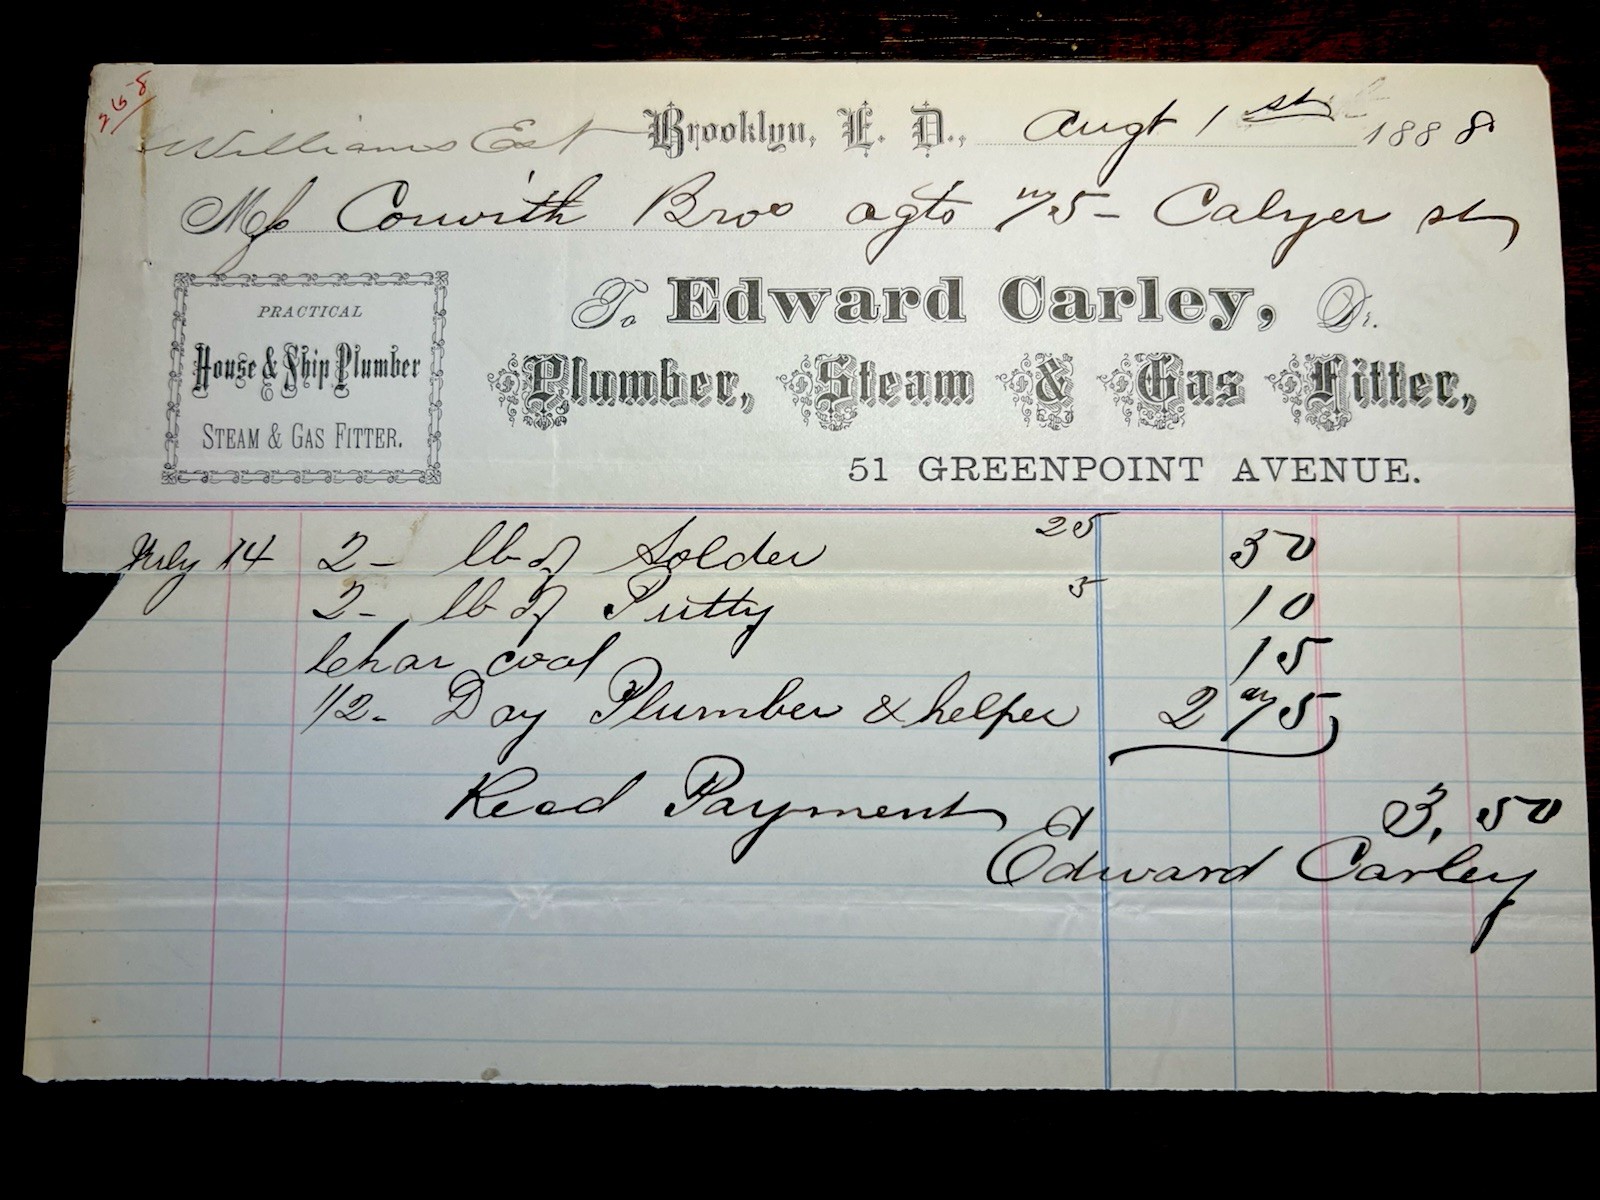 268
Williams Est
Brooklyn, E. D., Augt 1st 1888
Mess Corwith Bros agts 75 - Calyer st
PRACTICAL
House & Ship Plumber
STEAM & GAS FITTER.
To Edward Carley, Dr.
Plumber, Steam & Gas Fitter,
51 GREENPOINT AVENUE.
July 14 2 - lb of Solder 25 50
2 - lb of Putty 5 10
Char coal 15
1/2 - Day Plumber & helper 2 75
Recd Payment 3.50
Edward Carley